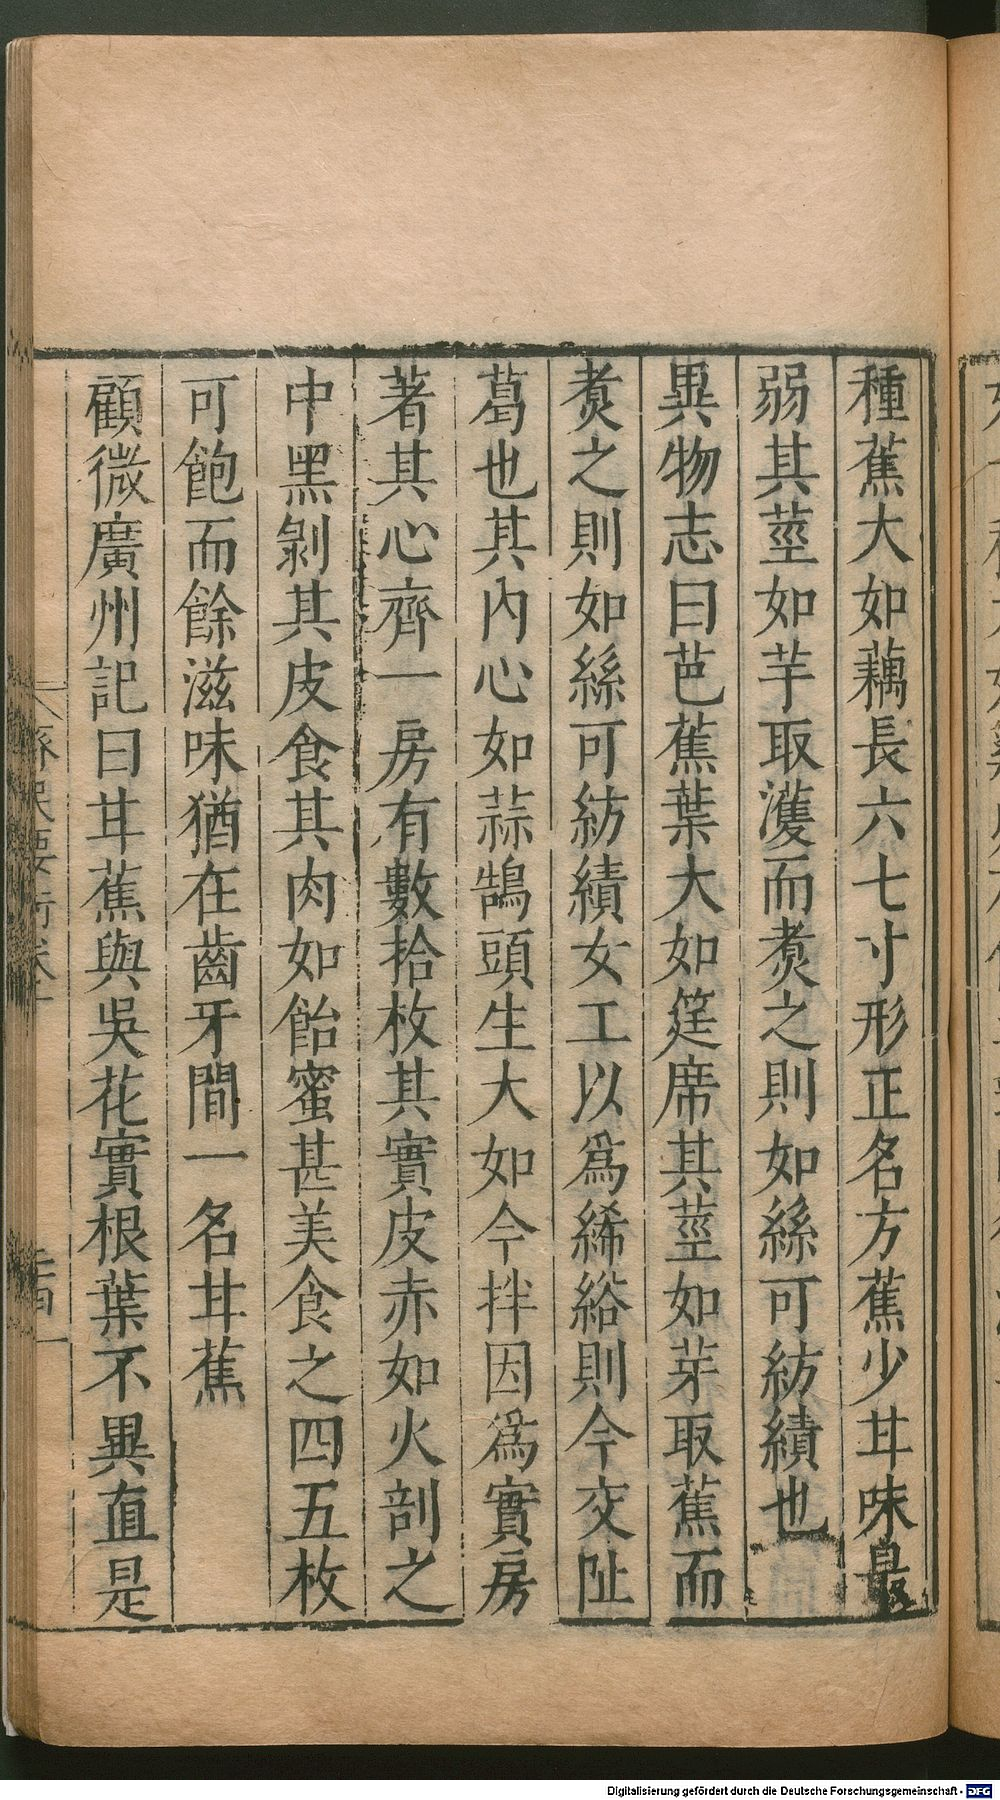 種蕉大如藕長六七寸形正名方蕉少甘味最
弱其莖如芋取濩而煑之則如絲可紡績也
異物志曰芭蕉葉大如筵席其莖如芽取蕉而
煑之則如絲可紡績女工以爲絺綌則今交阯
葛也其内心如蒜鵠頭生大如今拌因爲實房
著其心齊一房有數拾枚其實皮赤如火剖之
中黑剝其皮食其肉如飴蜜甚美食之四五枚
可飽而餘滋味猶在齒牙間一名甘蕉
顧微廣州記曰甘蕉與吳花實根葉不異直是
Digitalisierung gefördert durch die Deutsche Forschungsgemeinschaft - DFG